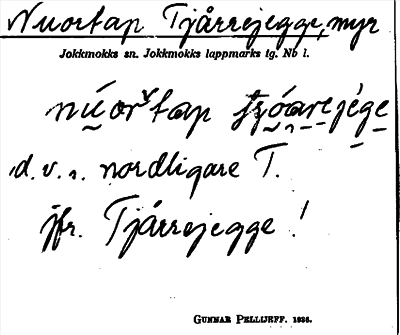 Nuortap Tjårrejegge, myr
Jokkmokks sn. Jokkmokks lappmarks tg. Nb l.
d. v. s. nordligare T.
jfr. Tjårrejegge!
GUNNAR PELLIJEFF. 1936.